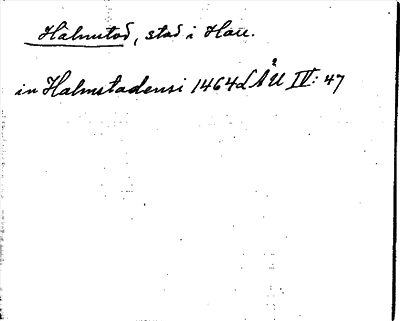 Halmstad, stad i Hall.
in Halmstadensi 1464 LÅU IV: 47